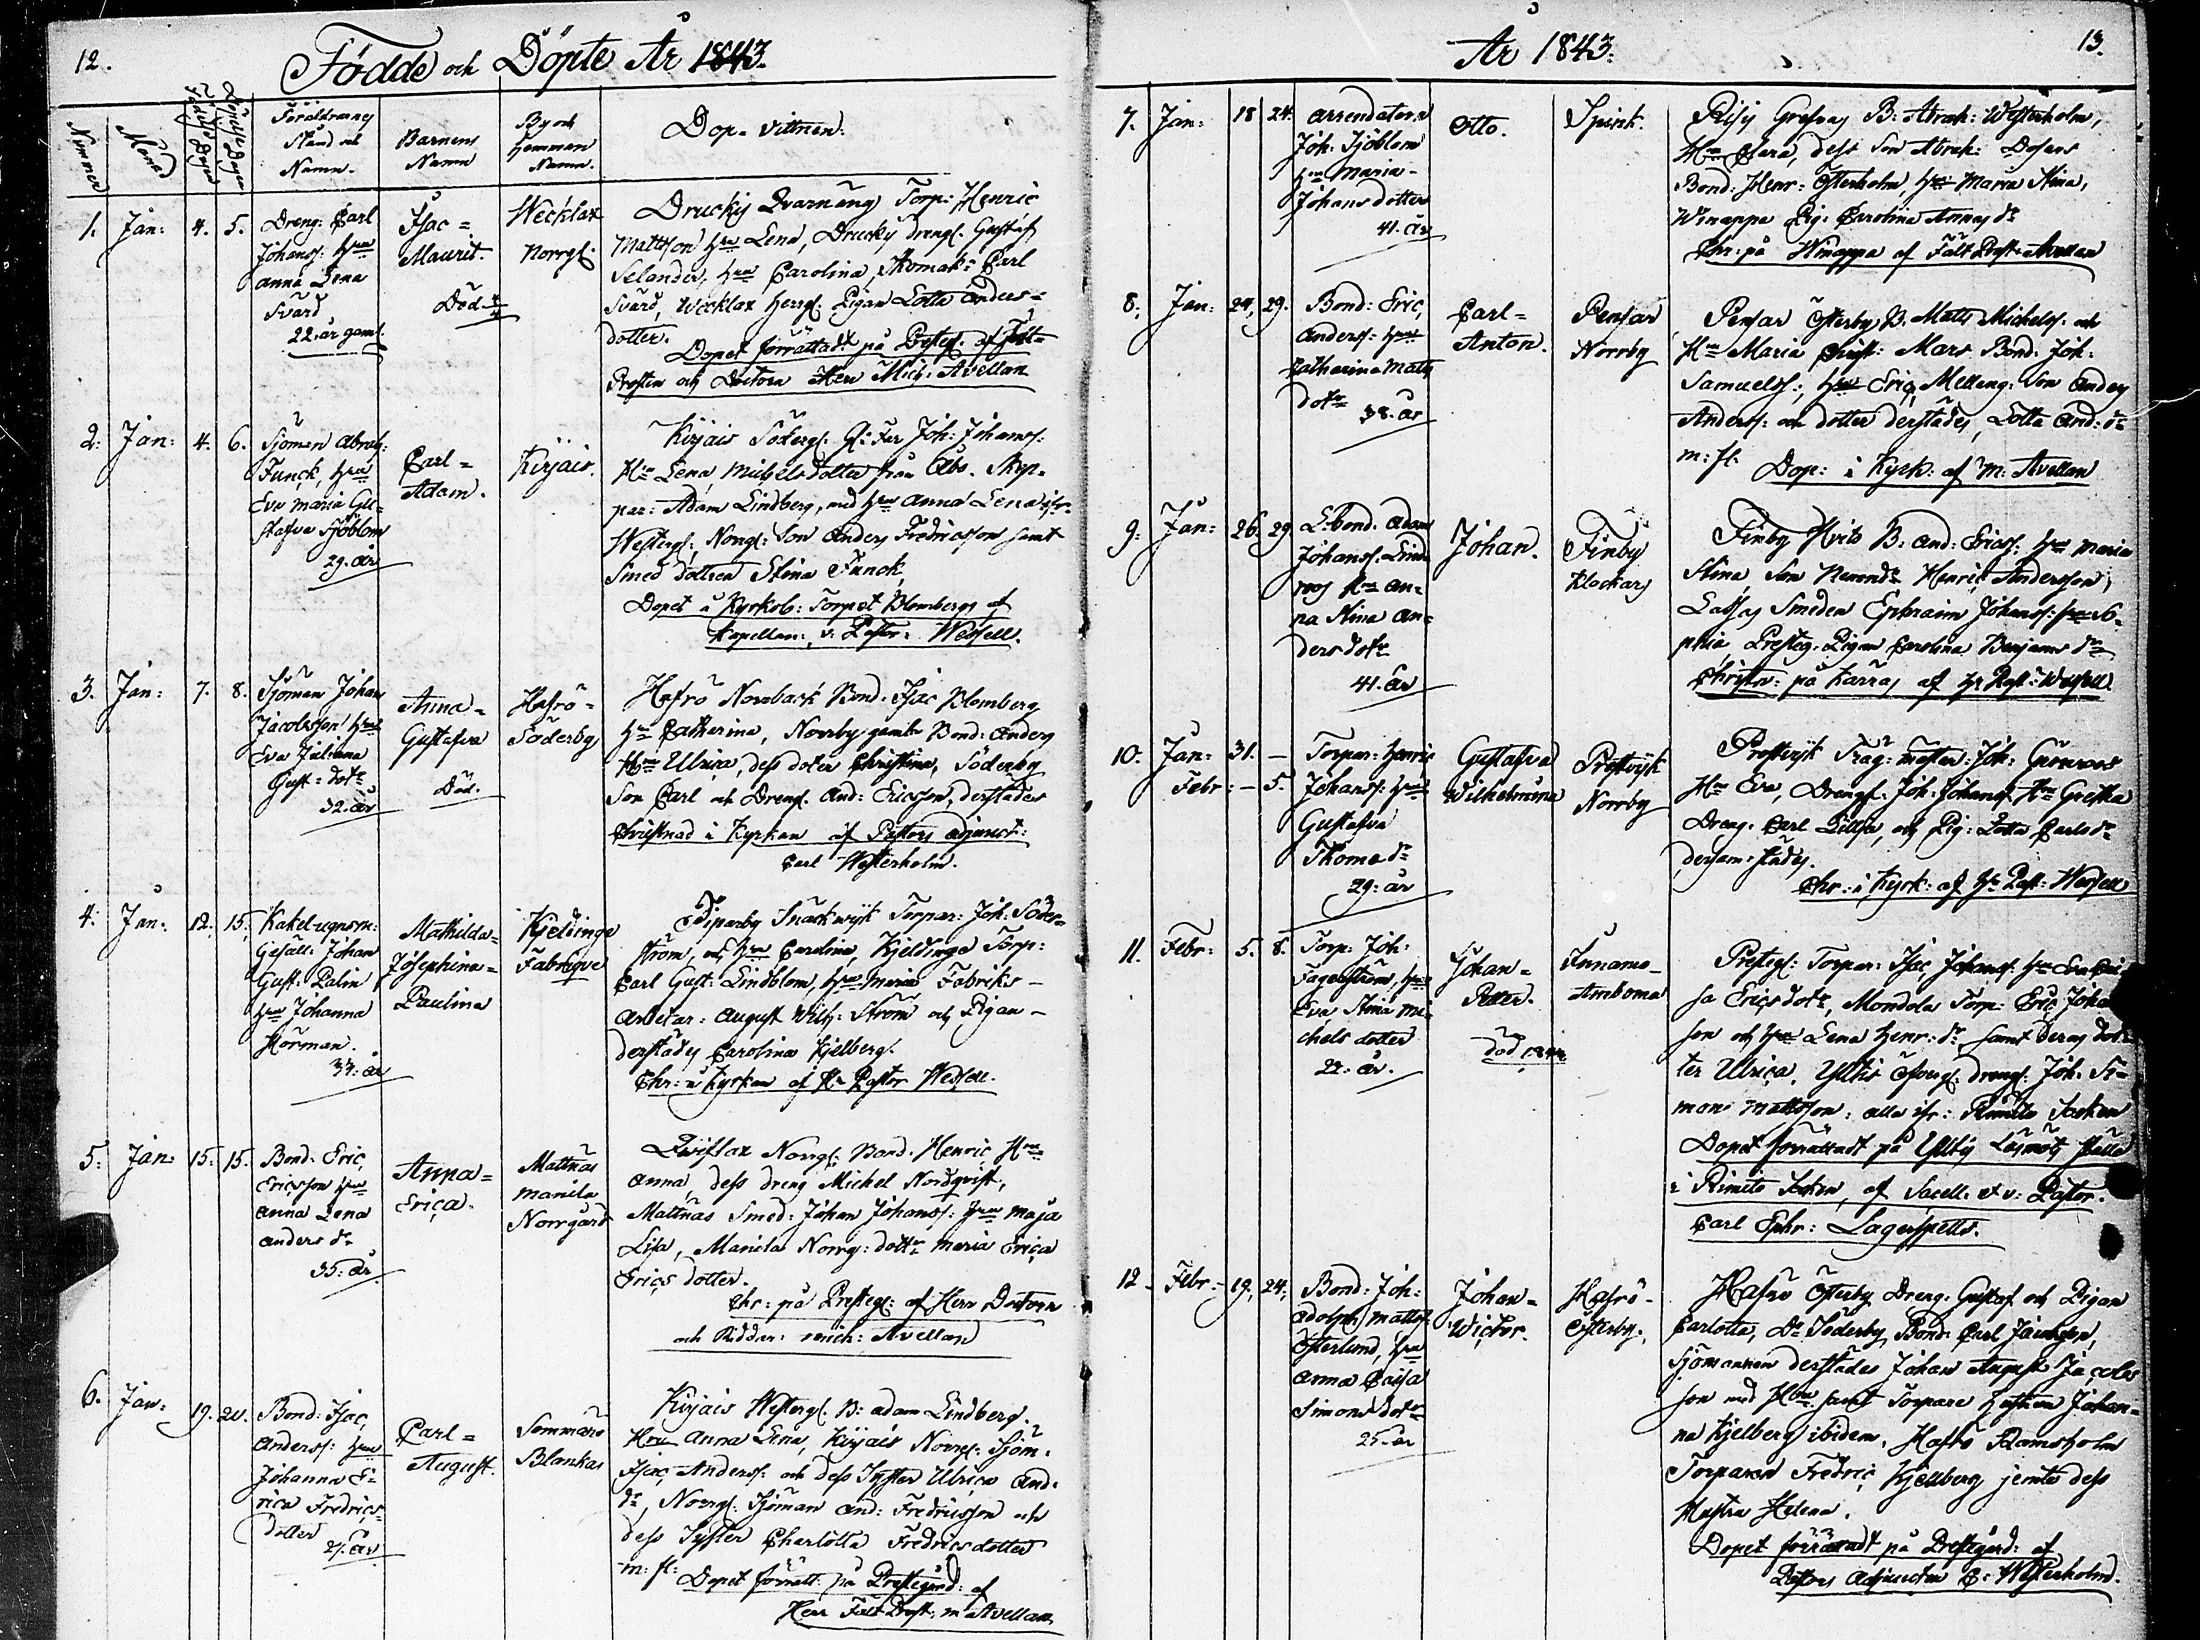 12.
Födde och Döpte År 1843.
Nummer
Månad
Födelse Dagen
Döpelse Dagen
Föräldrarnes
Stånd och
Namn.
Barnens
Namn
By och
Hemman
Namn.
Dop-Vittnen.
1. Jan: 4. 5.
Dreng: Carl
Johanss: Hru
Anna Lena
Svärd
22. år gaml.
Isac =
Maurit.
Död.
Wecklax
Norrgl.
Druckis Qvarnäng Torp: Henric
Mattsson Hru Lena, Druckis drengl. Gustaf
Selander, Hru Carolina, Skomak: Carl
Svärd, Wecklax Herrgl. Pigan Lotta Anders=
dotter.
Dopet förrättadt på Presteg. af Fält=
Prosten och Doctorn Herr Mich: Avellan
2. Jan: 4. 6.
Sjöman Abrah:
Funck, Hru
Eva Maria Gu=
stafva Sjöblom
29. år
Carl =
Adam.
Kirjais.
Kirjais Söderg. Joh: Johanss:
Hru Lena, Michelsdotter från Åbo. Skep=
par: Adam Lindberg, med Hru Anna Lena
Westergl: Norrgl: Son Anders Fredricsson samt
Smed dottren Stina Funck,
Dopet å Kyrkob: Torpet Blombergs af
Kapellan: v: Pastor: Wessell.
3. Jan: 7. 8.
Sjöman Johan
Jacobsson Hru
Eva Juliana
Gust: dotr
32. år
Anna =
Gustafva
Död.
Hafrö =
Söderby
Hafrö Norrback Bond. Isac Blomberg
Hru Catherina, Norrby gamla Bond: Anders
Hru Ulrica, dess doter Christina, Söderby
Son Carl och Drengl. And: Ericsson, derstädes
Christnad i Kyrkan af Pastors adjunct:
Carl Westerholm.
4. Jan: 12. 15.
Kakelugnsm:
Gesäll: Johan
Gust: Palin
Hru Johanna
Hörman.
34. år
Mathilda =
Josephina =
Paulina
Kjeldinge
Fabrique
Snäckwijk Torpar: Joh: Söder=
ström, och Hru Carolina, Kjeldinge Torp:
Carl Gust: Lindblom, Hru Maria Fabriks-
Arbetar: August Wilh: Ström och Pigan-
derstädes Carolina Kjelberg.
Chr: i Kyrkan af Hr Pastor Wessell.
5. Jan: 15. 15.
Bond: Eric
Ericsson Hru
Anna Lena
Anders dr
35. år
Anna =
Erica.
Mattnäs
Manila
Norrgård
Qviflax Norrgl: Bond: Henric Hru
Anna, dess dreng Michel Nordqvist,
Mattnäs Smed: Johan Johanss: Hru Maja
Lisa, Manila Norrg: dottr Maria Erica
Erics dotter.
Chr: på Presteg: af Herr Doctorn
och Riddar: Mich: Avellan
6. Jan: 19. 20.
Bond: Isac
Anderss: Hru
Johanna E=
rica Fredrics=
dotter
27. år
Carl =
August.
Sommarö
Blankas
Kirjais Westergl: B: Adam Lindberg.
Hru Anna Lena, Kirjais Norrg: Sjöm:
Isac Anderss: och dess Syster Ulrica And:
dr, Norrgl: Sjöman And: Fredricsson och
dess Syster Charlotta Fredricsdotter
m: fl: Dopet förrätt: på Prestegård: af
Herr Fält Prost: M Avellan
År 1843.
13.
7. Jan: 18 24.
Arrendatorn
Joh: Sjöblom
Hru Maria-
Johansdotter
41. år
Otto.
Spink.
Risis Grefsas B: Abrah: Westerholm,
Hru Clara, dess Son Abrah: Dosens
Bond: Henr: Österholm, Hru Maria Stina,
Winappa Pig: Carolina Annas dr
Chr: på Winappa af Fält Prost: Avellan
8. Jan: 24. 29.
Bond: Eric
Anderss: Hru
Catharina Mats
dotr 38. år
Carl =
Anton.
Pensar
Norrby
Pensar Österby B. Matts Michelss: och
Hru Maria Christ: Mars Bond: Joh:
Samuelss:, Hru Eric Mellang: Son Anders
Anderss: och dotter derstädes, Lotta And: dr
m: fl: Dop: i Kyrk: af M: Avellan
9. Jan: 26. 29
L:bond: Adam
Johanss: Lind
roos Hru An=
na Stina An=
ders dotr
41. år
Johan.
Finby
Klockars
Finby Hvits B: And: Ericss: Hru Maria
Stina Son Henric Andersson,
Lassas Smeden Ephraim Johanss: Hru So=
phia, Presteg: Pigan Carolina Benjams dr
Christn: på Karras af Hr Past: Wessell
10. Jan: 31. –
Febr: – 5.
Torpar: Henric
Johanss: Hru
Gustafva
Thoma dr
29. år
Gustafva
Wilhelmina
Prostvijk
Norrby
Prostvijk Träg: mäster: Joh: Grönroos
Hru Eva, Drengl. Joh: Johanss: Hru Gretha
Dreng: Carl Lillja, och Pig: Lotta Carls dr
dersam: städes.
Chr: i Kyrk: af Hr Past: Wessell
11. Febr: 5. 8.
Torp: Joh:
Fagerström, Hru
Eva Stina Mi=
chels dotter
22. år.
Johan =
Petter.
död 1844
Innamo-
Amboma
Presteg: Torpar: Isac Johanss: Hru Eva
sa Ericsdotr, Mondola Torp: Eric Johan
son och Hru Lena Henr: dr samt deras dot=
ter Ulrica, Yltis Öfvergl: drengl: Joh: Si=
mon Mattsson: alla ifr: Rimito Socken
Dopet förrättadt på Yltis Läsmöts ställe
i Rimito Socken, af Sacell. et v: Pastor.
Carl Ephr: Lagerspetts.
12 Febr: 19. 24.
Bond: Joh:
Adolph Matts
Österlund, Hru
Anna Caisa
Simons dotr
25. år
Johan =
Wictor.
Hafrö-
Österby.
Hafrö Österby Dreng: Gustaf och Pigan
Carlotta, Do Söderby, Bond: Carl
Sjömannen derstädes Johan August Jacobs
son med Hru samt Torpare hustrun Johan=
na Kjelberg ibidem. Hafrö Ramsholm
Torparen Fredric Kjellberg jemte dess
Hustru Helena.
Dopet förrättadt på Prestegård: af
Pastors Adjuncten C: Westerholm.